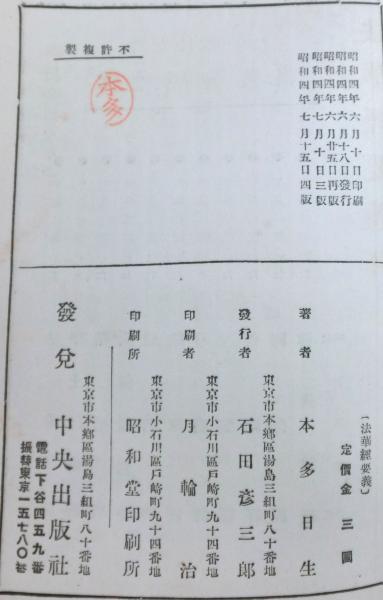 不許複製
本多
昭和四年六月十日印刷
昭和四年六月十八日發行
昭和四年六月廿五日再版
昭和四年七月十日三版
昭和四年七月十五日四版
(法華經要義)
定價金三圓
著者 本多日生
東京市本鄕區湯島三組町八十番地
發行者 石田彥三郎
東京市小石川區戶崎町九十四番地
印刷者 月輪治
東京市小石川區戶崎町九十四番地
印刷所 昭和堂印刷所
東京市本鄕區湯島三組町八十番地
發兌 中央出版社
電話下谷四五九番
振替東京一五七八〇番